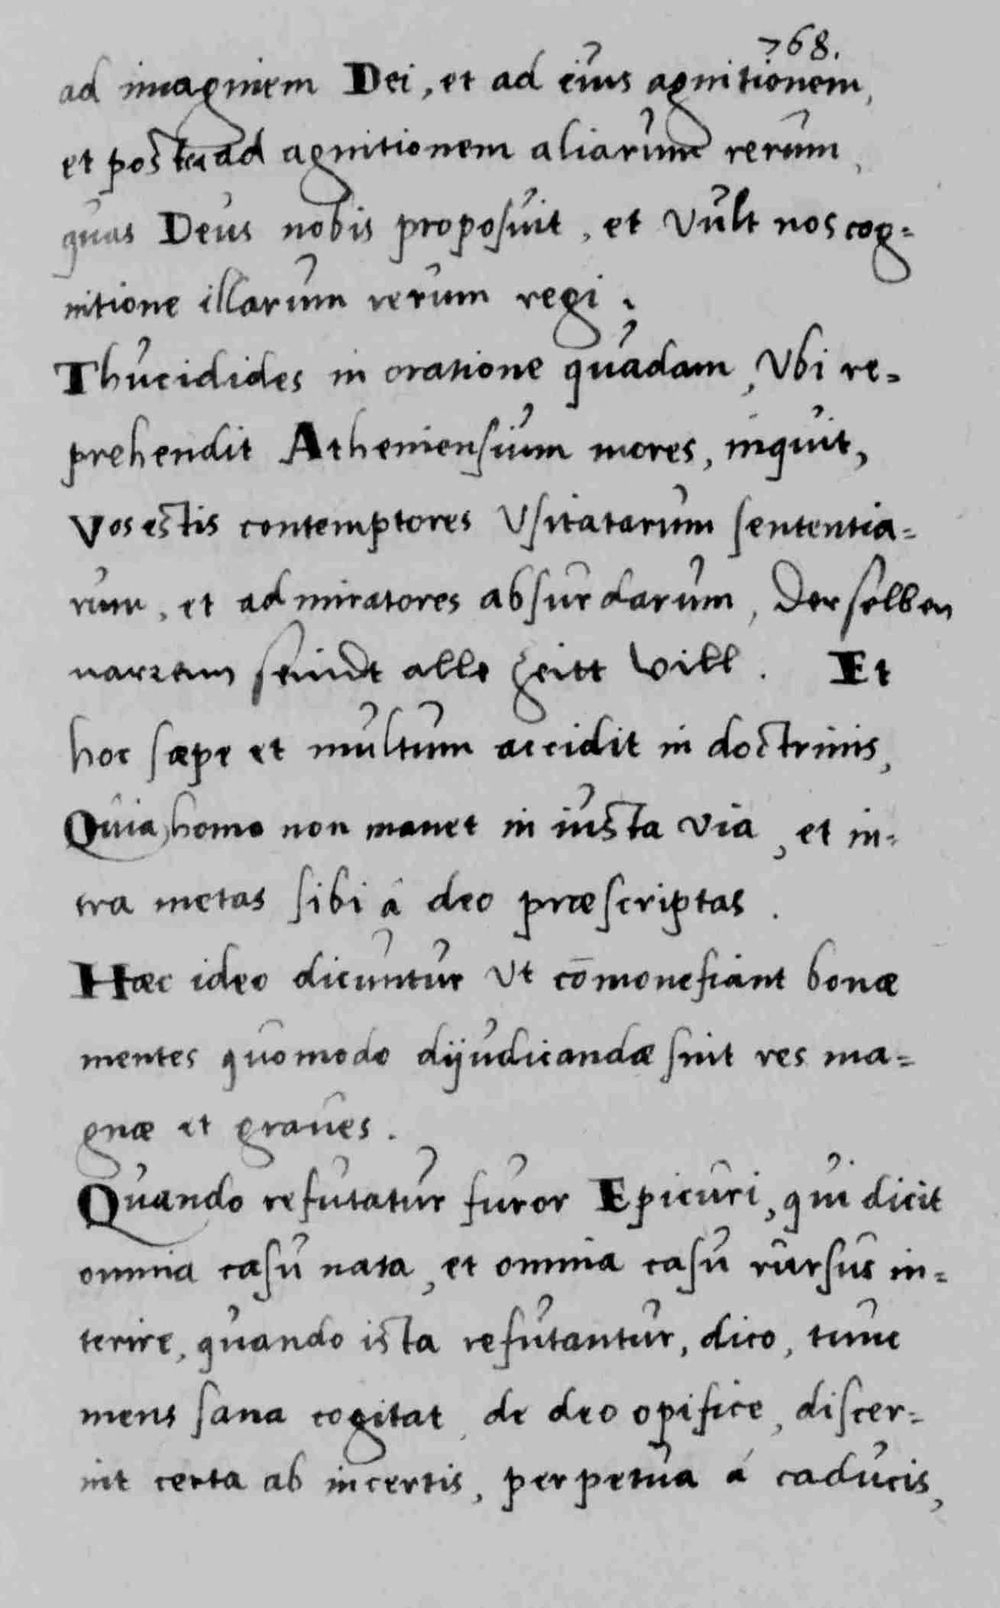 768.
ad imaginem Dei, et ad eius agnitionem,
et postea ad agnitionem aliarum rerum,
quas Deus nobis proposuit, et vult nos cog=
nitione illarum rerum regi.
Thucidides in oratione quadam, Vbi re=
prehendit Atheniensium mores, inquit,
Vos estis contemptores Vsitatarum sententia=
rum, et admiratores absurdarum, Der selben
narren seindt alle Zeitt vill. Et
hoc sæpe et multum accidit in doctrinis,
Quia homo non manet in iusta via, et in=
tra metas sibi â deo præscriptas.
Hæc ideo dicuntur Vt com̄onefiant bonæ
mentes quomodo dijudicandæ sint res ma=
gnæ et graues.
Quando refutatur furor Epicuri, qui dicit
omnia casu nata, et omnia casu rursus in=
terire, quando ista refutantur, dico, tunc
mens sana cogitat, de deo opifice, discer=
nit certa ab incertis, perpetua á caducis,